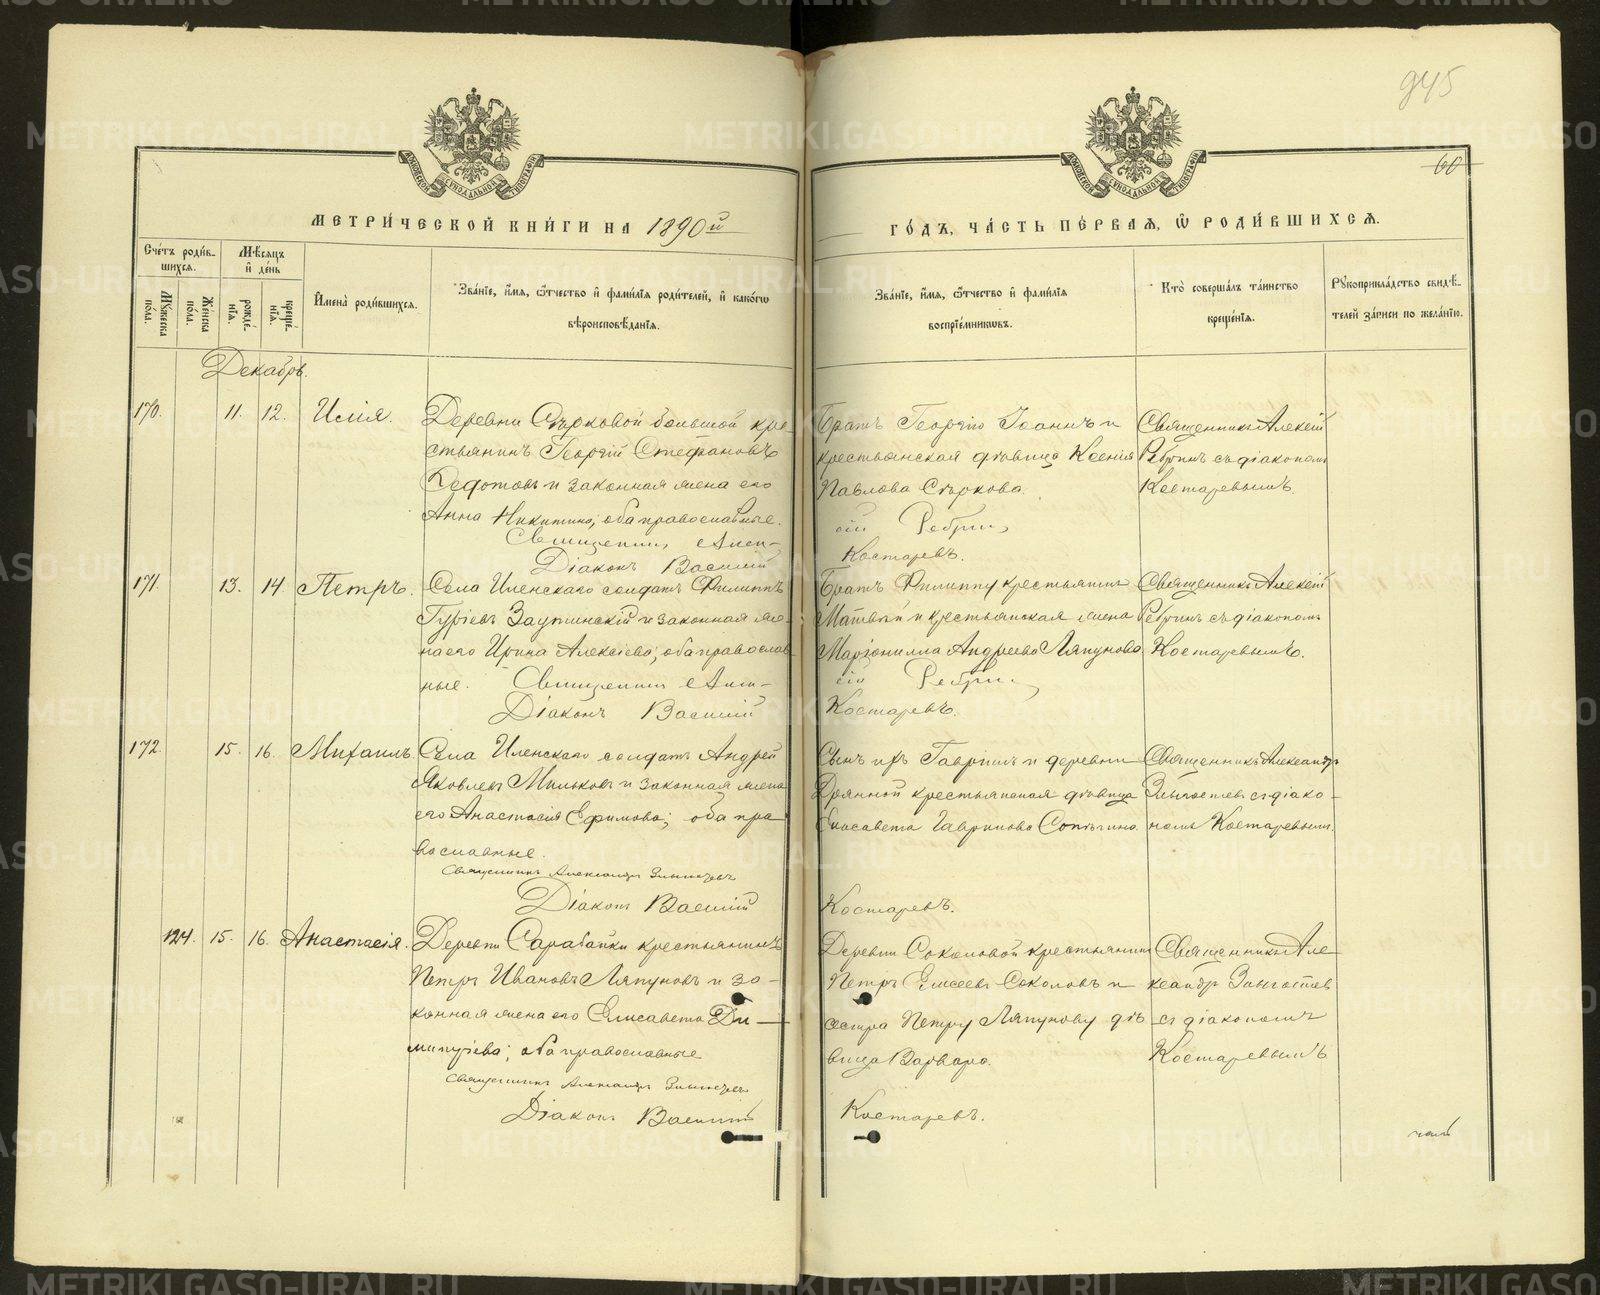 945
60
МЕТРИ́ЧЕСКОЙ КНИ́ГИ НА 1890й
ГО́ДЪ, ЧА́СТЬ ПЕ́РВАЯ, Ѿ РОДИ́ВШИХСЯ.
Сче́тъ роди́в-
шихся.
Мѣсяцъ
и҆ де́нь
Мꙋжеска
по́ла.
Же́нска
по́ла.
рожде́-
нїя.
креще́-
нїя.
И҆мена̀ роди́вшихся.
Зва́нїе, и҆́мя, ѻ҆́тчество и҆ фами́лїя роди́телей, и҆ како́гѡ
вѣроисповѣ́данїя.
Зва́нїе, и҆́мя, ѻ҆́тчество и҆ фами́лїя
воспрїе́мникѡвъ.
Кто̀ соверша́лъ та́инство
креще́нїя.
Рꙋкоприкла́дство свидѣ́-
телей за́писи по жела́нїю.
Декабрь.
170. 11. 12. Илія.
Деревни Сѣрковой большой кре-
стьянинъ Георгій Стефановъ
Федотовъ и законная жена его
Анна Никитина; оба православные.
Священникъ Алек-
Діаконъ Василій
Братъ Георгію Іоаннъ и
крестьянская дѣвица Ксенія
Павлова Сѣркова.
сій Ребрин
Костаревъ.
Священникъ Алексій
Ребринъ съ діакономъ
Костаревымъ.
171. 13. 14. Петръ.
Села Иленскаго солдатъ Филиппъ
Гурьевъ Заупинскій и законная же-
на его Ирина Алексіева; оба православ
ные. Священникъ Алек-
Діаконъ Василій
Братъ Филиппу крестьянинъ
Матвѣй и крестьянская жена
Маріонилла Андреева Ляпунова
сій Ребрин
Костаревъ.
Священникъ Алексій
Ребринъ съ діакономъ
Костаревымъ.
172. 15. 16. Михаилъ.
Села Иленскаго солдатъ Андрей
Яковлевъ Мильковъ и законная жена
его Анастасія Ефимова; оба пра
вославные.
Священникъ Александръ
Діаконъ Василій
Сынъ Гавріилъ и деревни
Дрянной крестьянская дѣвица
Елисавета Гаврилова
Костаревъ.
Священникъ Александръ
съ діако-
номъ Костаревымъ.
124. 15. 16. Анастасія.
Деревни Сарабайки крестьянинъ
Петръ Ивановъ Ляпуновъ и за-
конная жена его Елисавета Ди-
митріева; оба православные
Священникъ Александръ
Діаконъ Василій
Деревни Соколовой крестьянинъ
Петръ Елисеевъ Соколовъ и
сестра Петру Ляпунову дѣ
вица Варвара.
Костаревъ.
Священникъ Але
ксандръ
съ діакономъ
Костаревымъ
METRIKI.GASO-URAL.RU